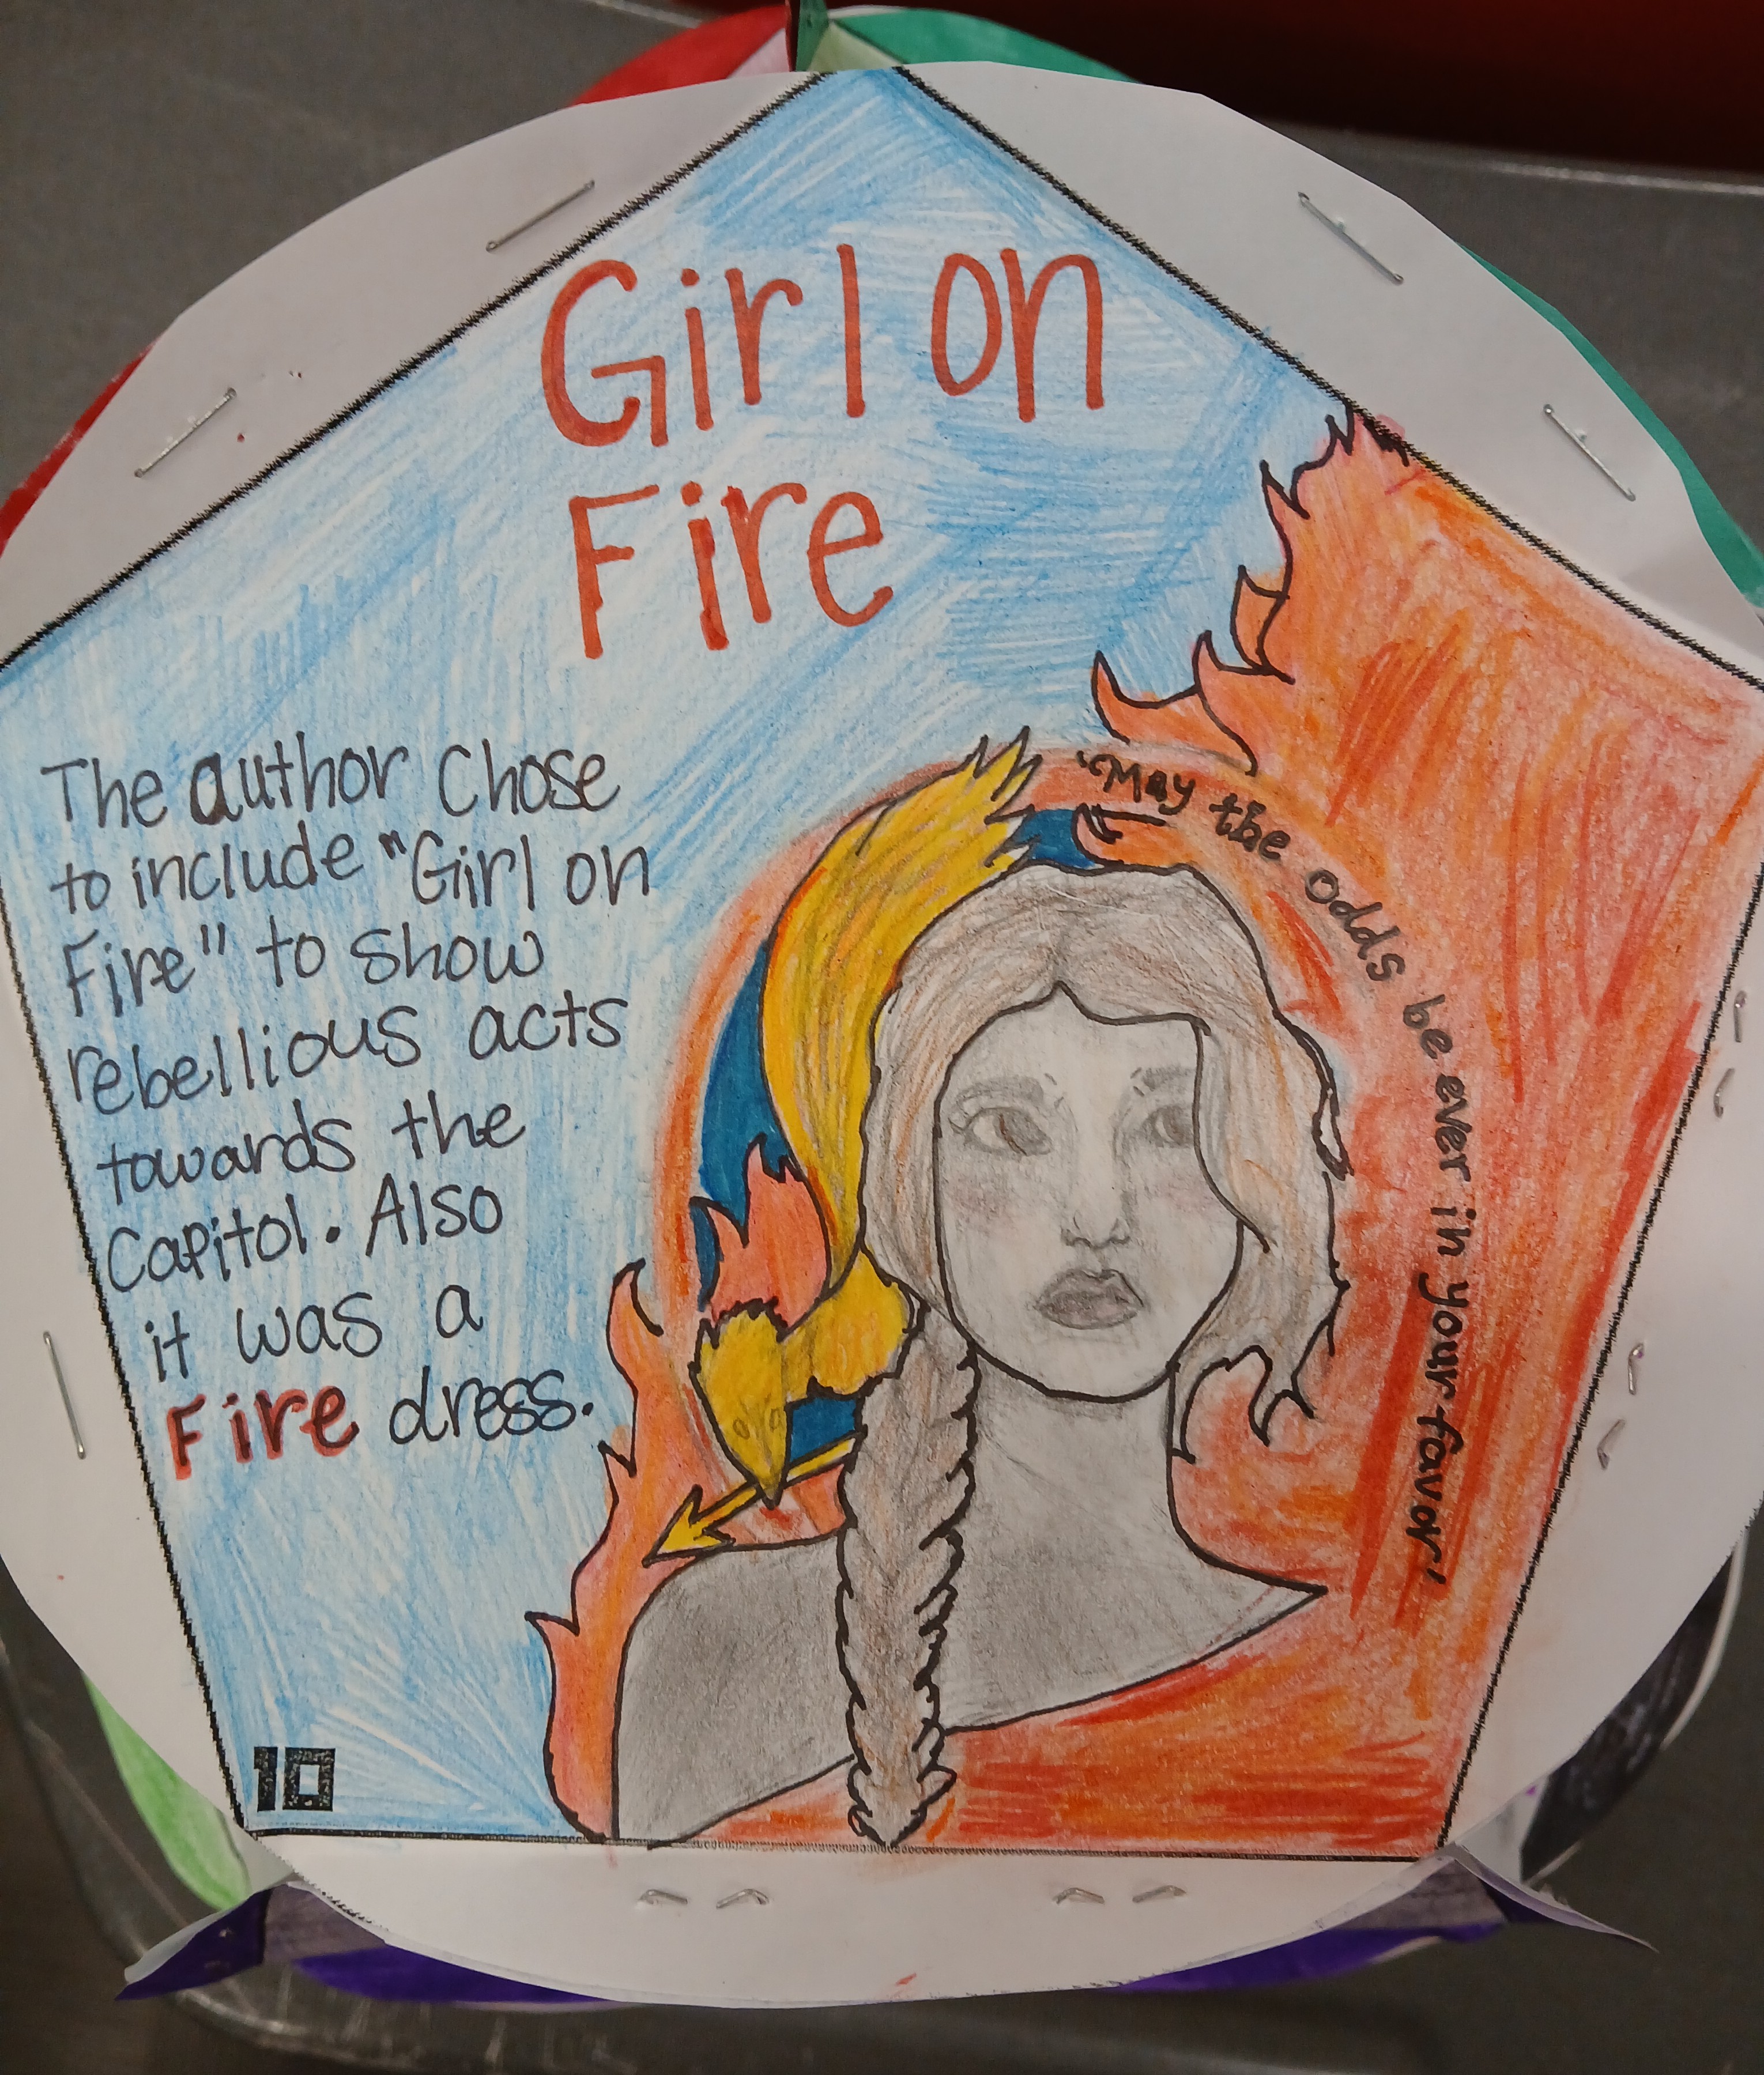 Girl on
Fire
The author chose
to include "Girl on
Fire" to show
rebellious acts
towards the
Capitol. Also
it was a
Fire dress.
"May the odds be ever in your favor!
10